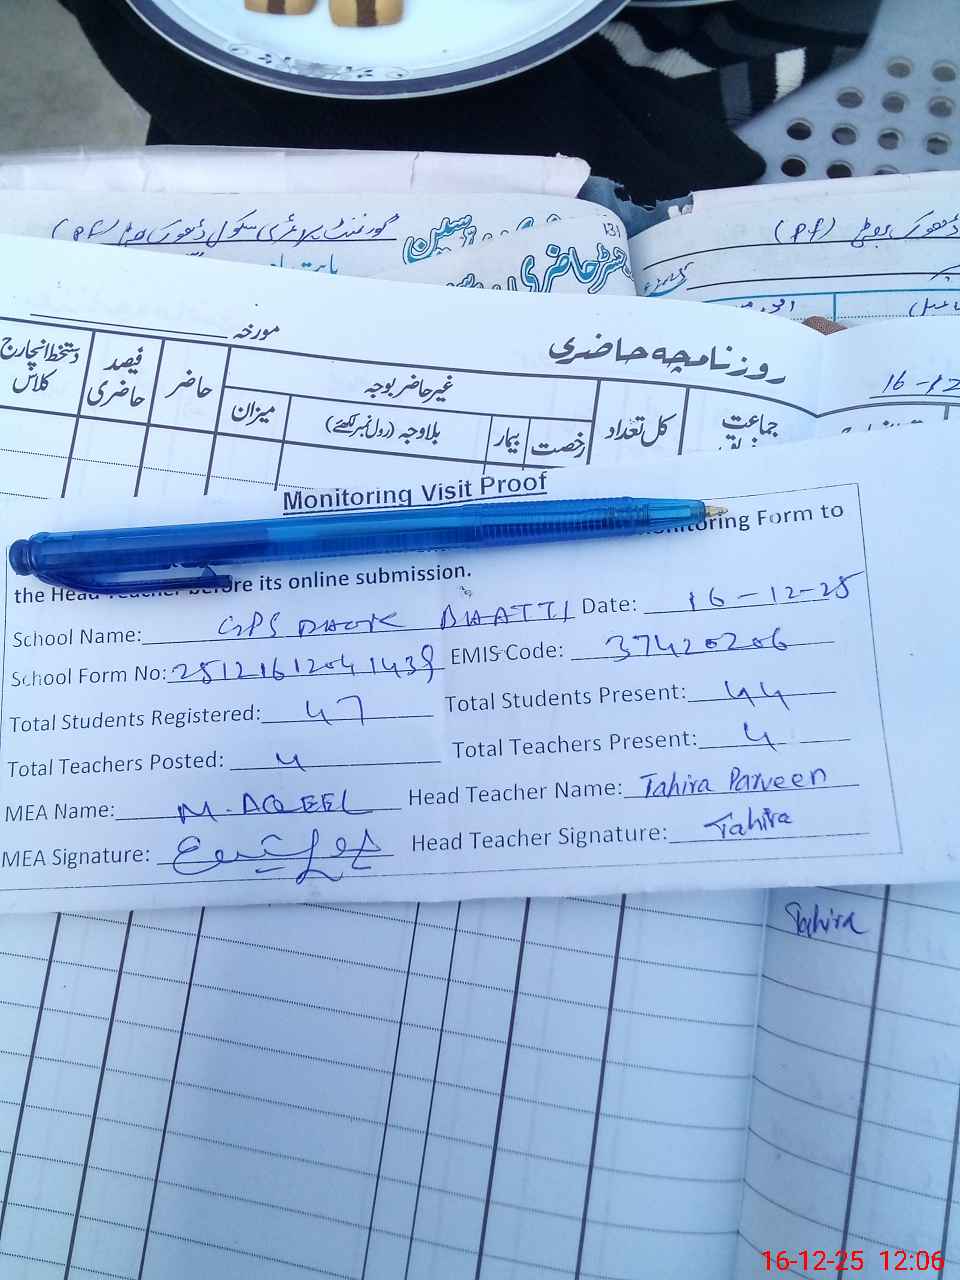 گورنمنٹ پرائمری سکول ڈھوک
روزنامچہ حاضری
مورخہ
16-12
دستخط انچارج کلاس
فیصد حاضری
حاضر
غیر حاضر بوجہ
میزان
بلاوجہ (رول نمبر لکھئے)
بیمار
رخصت
کل تعداد
جماعت
Monitoring Visit Proof
Monitoring Form to
the Head Teacher before its online submission.
School Name: GPS DHOK BHATTI Date: 16-12-25
School Form No: EMIS Code: 37420206
Total Students Registered: 47 Total Students Present: 44
Total Teachers Posted: 4 Total Teachers Present: 4
MEA Name: M. AQEEL Head Teacher Name: Tahira Parveen
MEA Signature: Head Teacher Signature: Tahira
Tahira
16-12-25 12:06